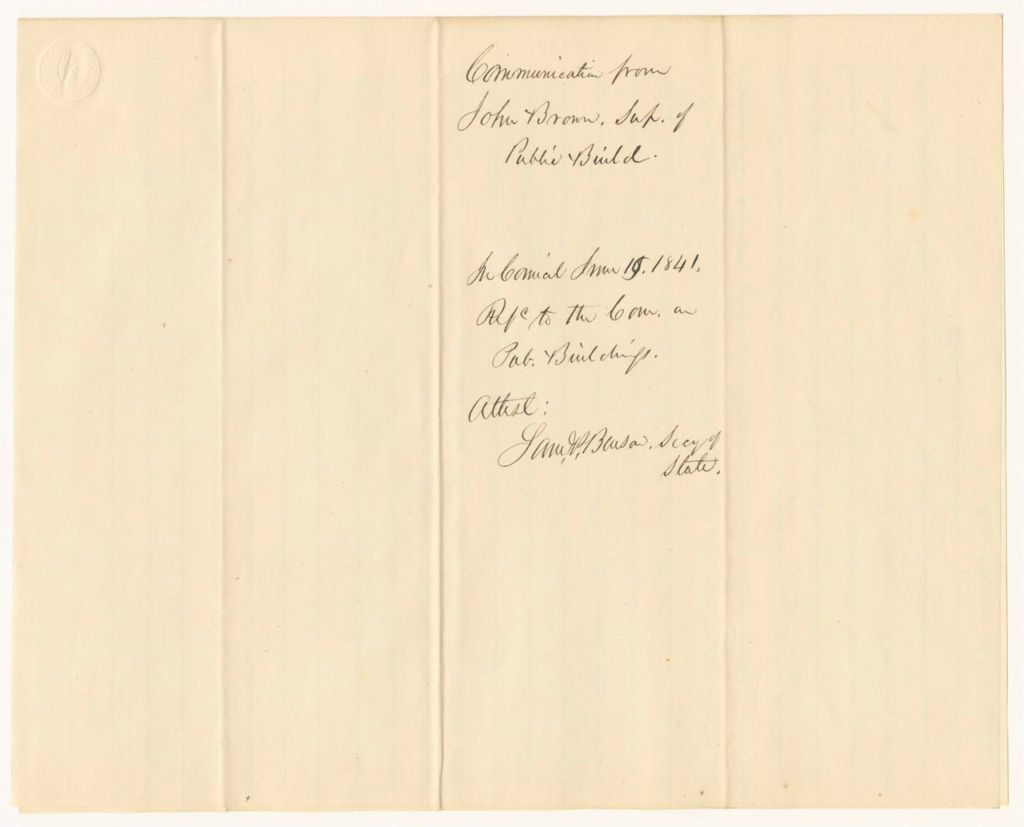 Communication from
John Brown, Sup. of
Public Build.
In Council June 15. 1841.
Refd to the Com. on
Pub. Buildings.
Attest:
Sam. P. Benson, Secy of
State.